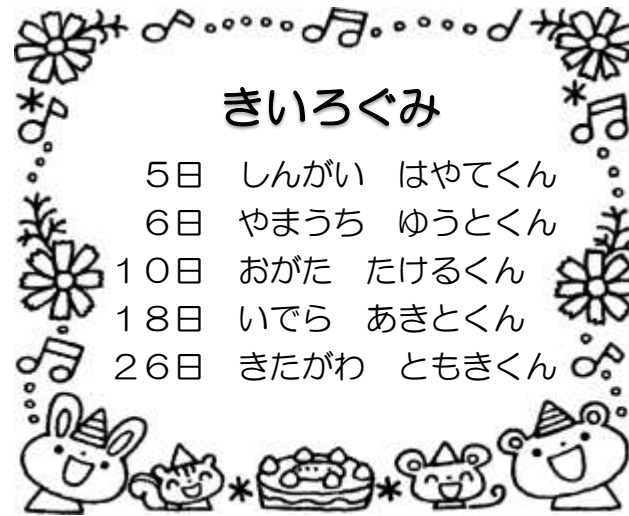 きいろぐみ
5日　しんがい　はやてくん
6日　やまうち　ゆうとくん
10日　おがた　たけるくん
18日　いでら　あきとくん
26日　きたがわ　ともきくん